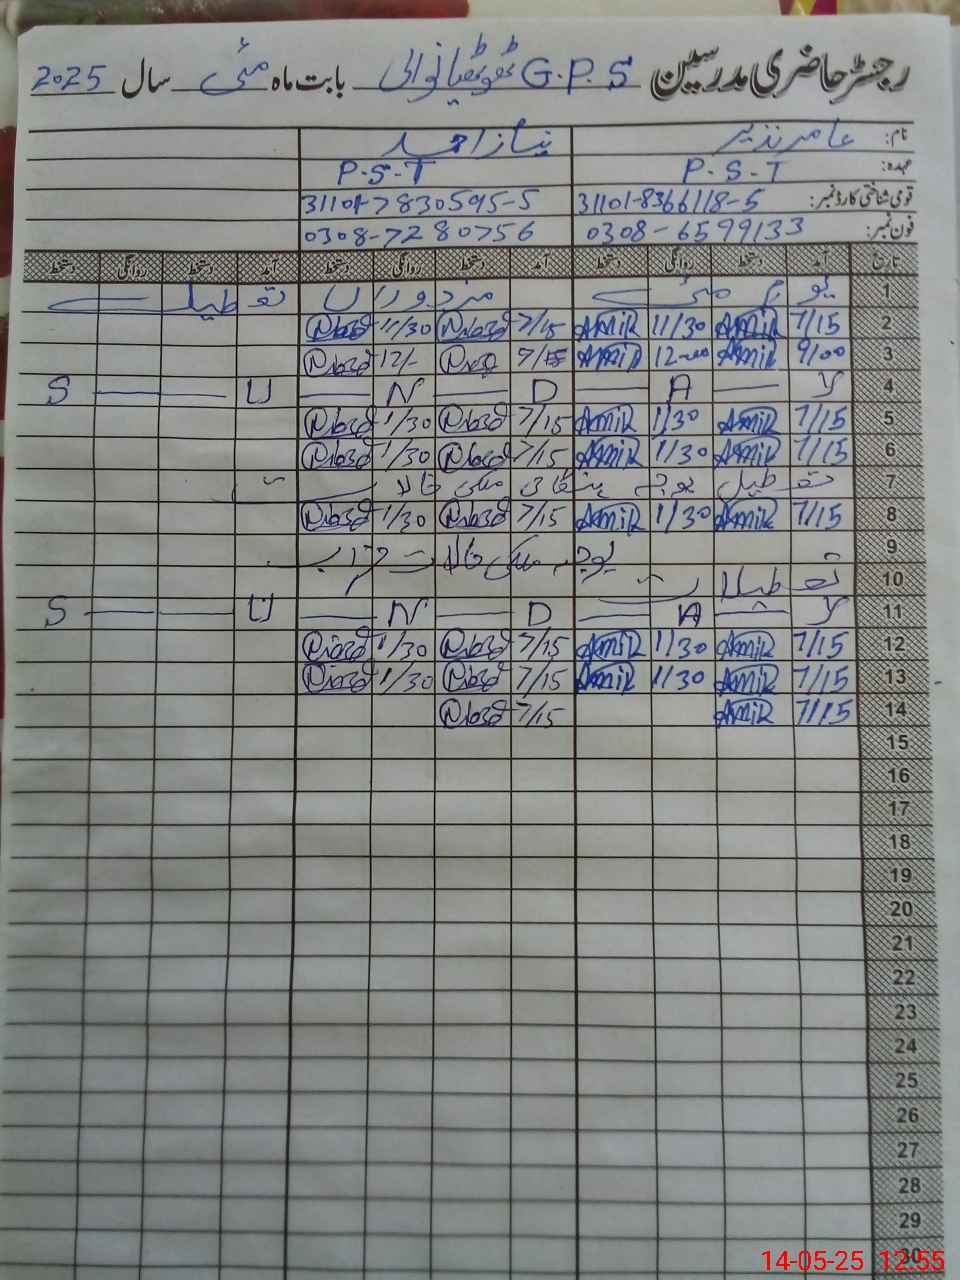 رجسٹر حاضری مدرسین G.P.S بابت ماہ مئی سال 2025
نام: عامر نذیر نیاز احمد
عہدہ: P.S.T P-S-T
قومی شناختی کارڈ نمبر: 31101-8366118-5 31101-7830595-5
فون نمبر: 0308-6599133 0308-7280756
تاریخ آمد دستخط روانگی دستخط آمد دستخط روانگی دستخط آمد دستخط روانگی دستخط
1 یوم مئی مزدوراں تعطیل
2 7/15 AMiR 11/30 AMiR 7/15 11/30
3 9/00 AMiR 12-00 AMiR 7/15 12/-
4 Y A D N U S
5 7/15 AMiR 1/30 AMiR 7/15 1/30
6 7/15 AMiR 1/30 AMiR 7/15 1/30
7 تعطیل بوجہ ملکی حالات
8 7/15 AMiR 1/30 AMiR 7/15 1/30
9 بوجہ ملکی حالات خراب
10 تعطیلات
11 Y A D N U S
12 7/15 AMiR 1/30 AMiR 7/15 1/30
13 7/15 AMiR 1/30 AMiR 7/15 1/30
14 7/15 AMiR 7/15
15
16
17
18
19
20
21
22
23
24
25
26
27
28
29
30
14-05-25 12:55